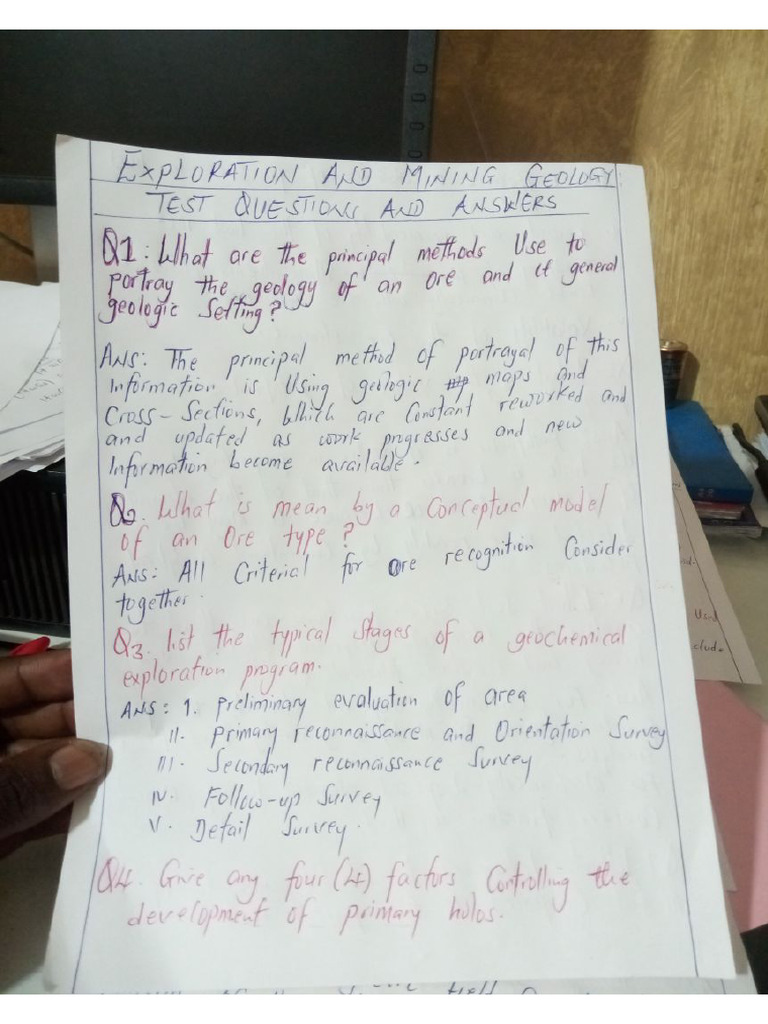 EXPLORATION AND MINING GEOLOGY:
TEST QUESTIONS AND ANSWERS
Q1: What are the principal methods Use to
portray the geology of an Ore and it general
geologic Setting?
ANS: The principal method of portrayal of this
Information is Using geologic maps and
Cross-Sections, Which are Constant reworked and
and updated as work progresses and new
Information become available.
Q2. What is mean by a Conceptual model
of an Ore type?
ANS: All Criterial for Ore recognition Consider
together.
Q3. List the typical Stages of a geochemical
exploration program.
ANS: 1. Preliminary evaluation of area
II. Primary reconnaissance and Orientation Survey
III. Secondary reconnaissance Survey
IV. Follow-up Survey
V. Detail Survey.
Q4. Give any four (4) factors Controlling the
development of primary holos.
Used
clude